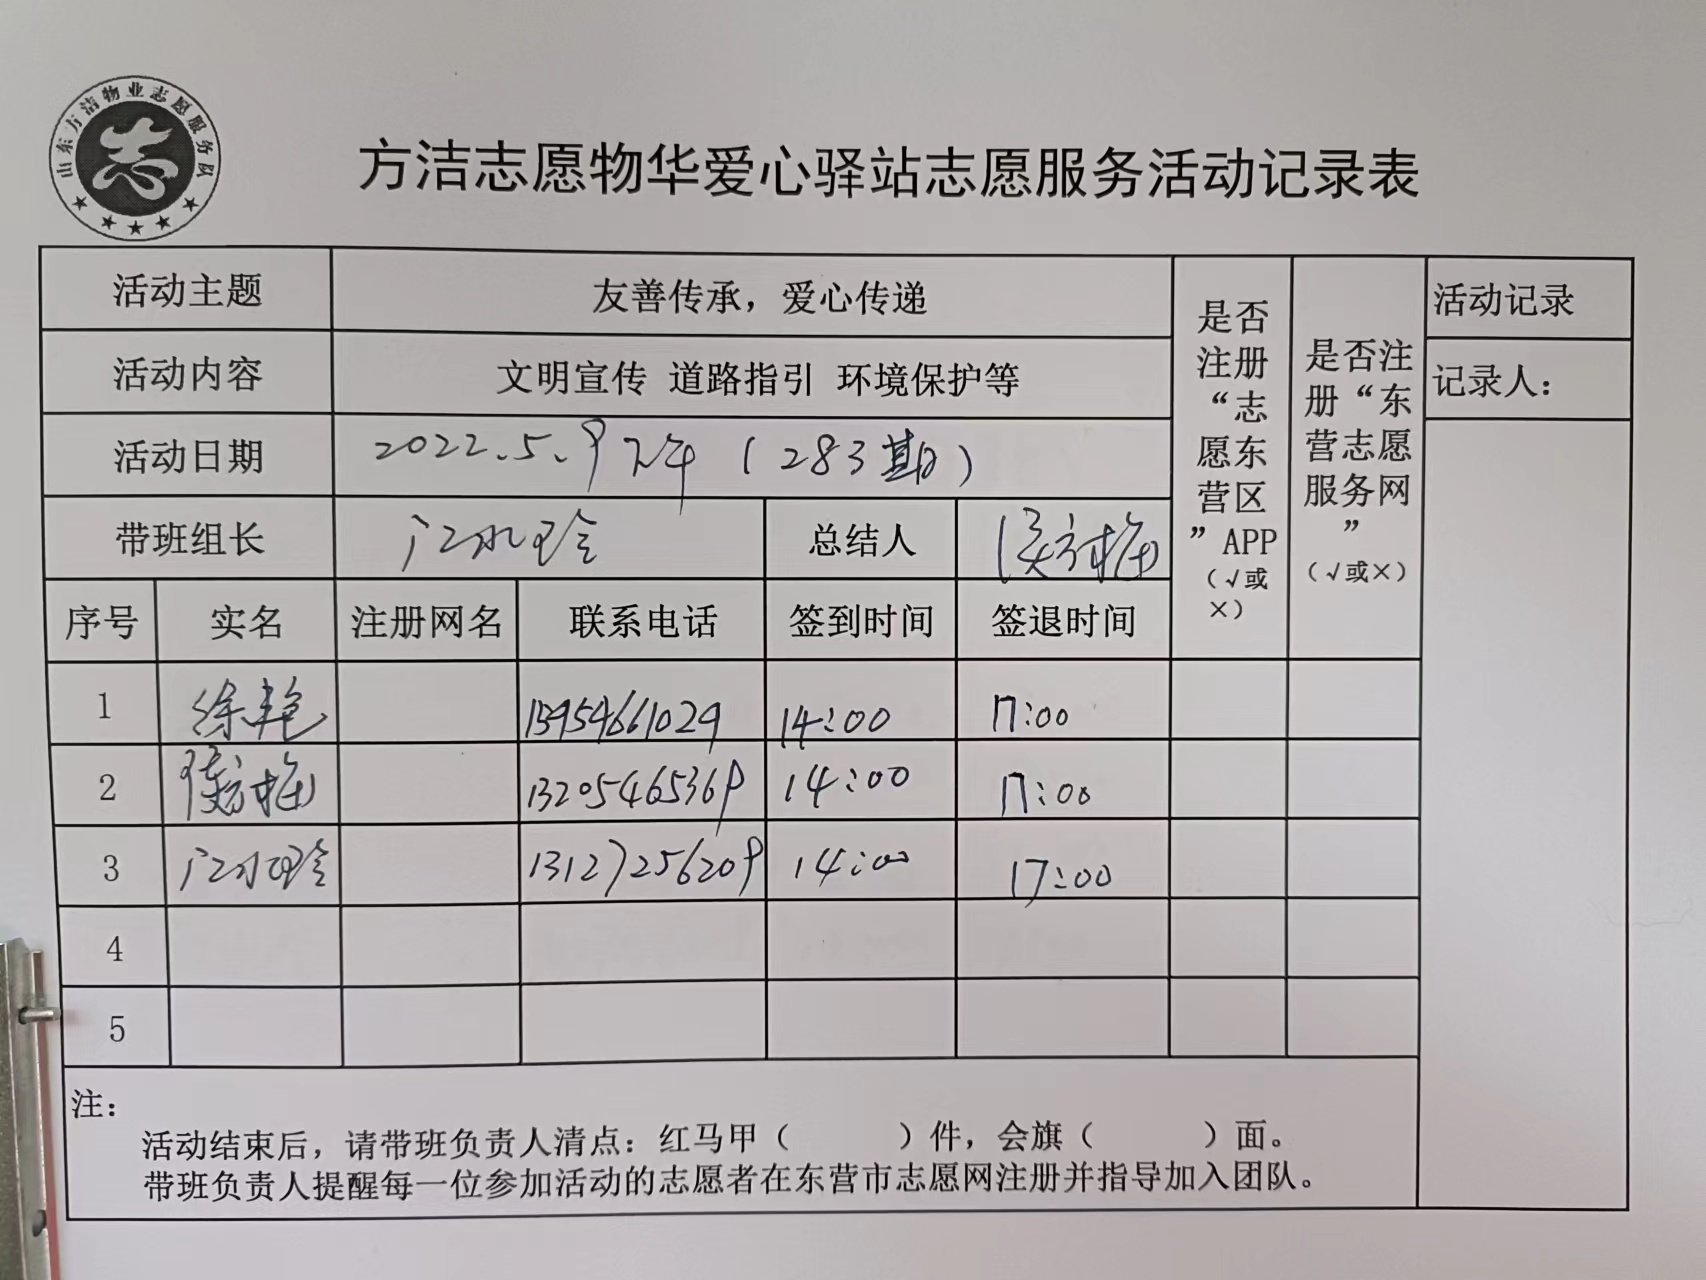 山东方洁物业志愿服务队
志
方洁志愿物华爱心驿站志愿服务活动记录表
活动主题 友善传承，爱心传递
活动内容 文明宣传 道路指引 环境保护等
活动日期 2022.5.9 下午（283期）
带班组长 总结人 侯方梅
序号 实名 注册网名 联系电话 签到时间 签退时间
是否
注册
“志
愿东
营区
”APP
（√或
×）
是否注
册“东
营志愿
服务网
”
（√或×）
活动记录
记录人：
1 徐艳艳 13954661029 14:00 17:00
2 侯方梅 13205465369 14:00 17:00
3 13127256209 14:00 17:00
4
5
注：
活动结束后，请带班负责人清点：红马甲（ ）件，会旗（ ）面。
带班负责人提醒每一位参加活动的志愿者在东营市志愿网注册并指导加入团队。